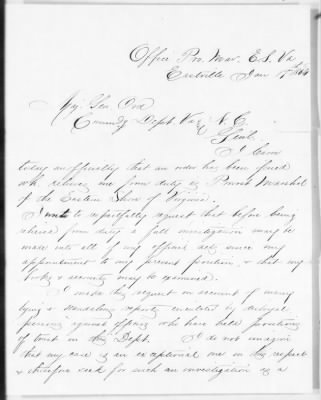 Office Pro. Mar. E. S. Va
Eastville Jan
Maj. Gen Ord
Commdg Dept. Va & N. C.
I learn
today unofficially that an order has been issued
wh. relieves me from duty as Provost Marshal
of the Eastern Shore of Virginia.
I write to respectfully request that before being
relieved from duty a full investigation may be
made into all of my official acts since my
appointment to my present position, & that my
books & records may be examined.
I make this request on account of many
lying & scandalous reports circulated by
persons against officers who have held positions
of trust in this Dept. I do not imagine
that my case is an exceptional one in this respect
& therefore seek for such an investigation as a